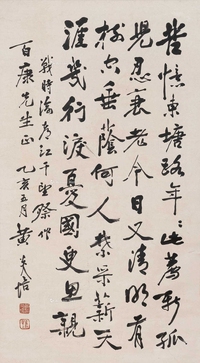 憶東塘路年年此薦新孤
兒忍衰老今日又清明有
樹垂蔭何人禁采薪天
涯幾行淚憂國更思親
戰時渝江干望祭作
百康先生正 亥五月 黃炎培